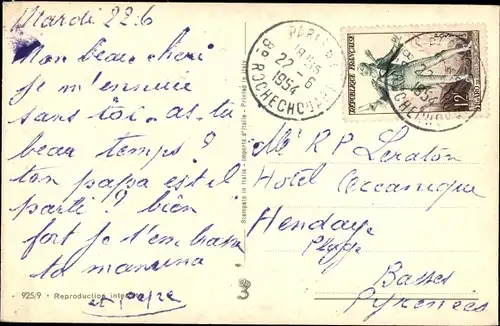 Mardi 22.6
Mon beau chéri
je m'ennuie
sans toi. as-tu
beau temps?
ton papa est il
parti? bien
fort je t'embrasse
ta maman
et
925/9 - Reproduction
Stampato in Italia - Importé d'Italie - Printed in Italy
PARIS
18H15
22-6
1954
Bd ROCHECHOUART
REPUBLIQUE FRANÇAISE
12F
R P Leraton
Hotel Océanique
Hendaye
Plage
Basses
Pyrénées